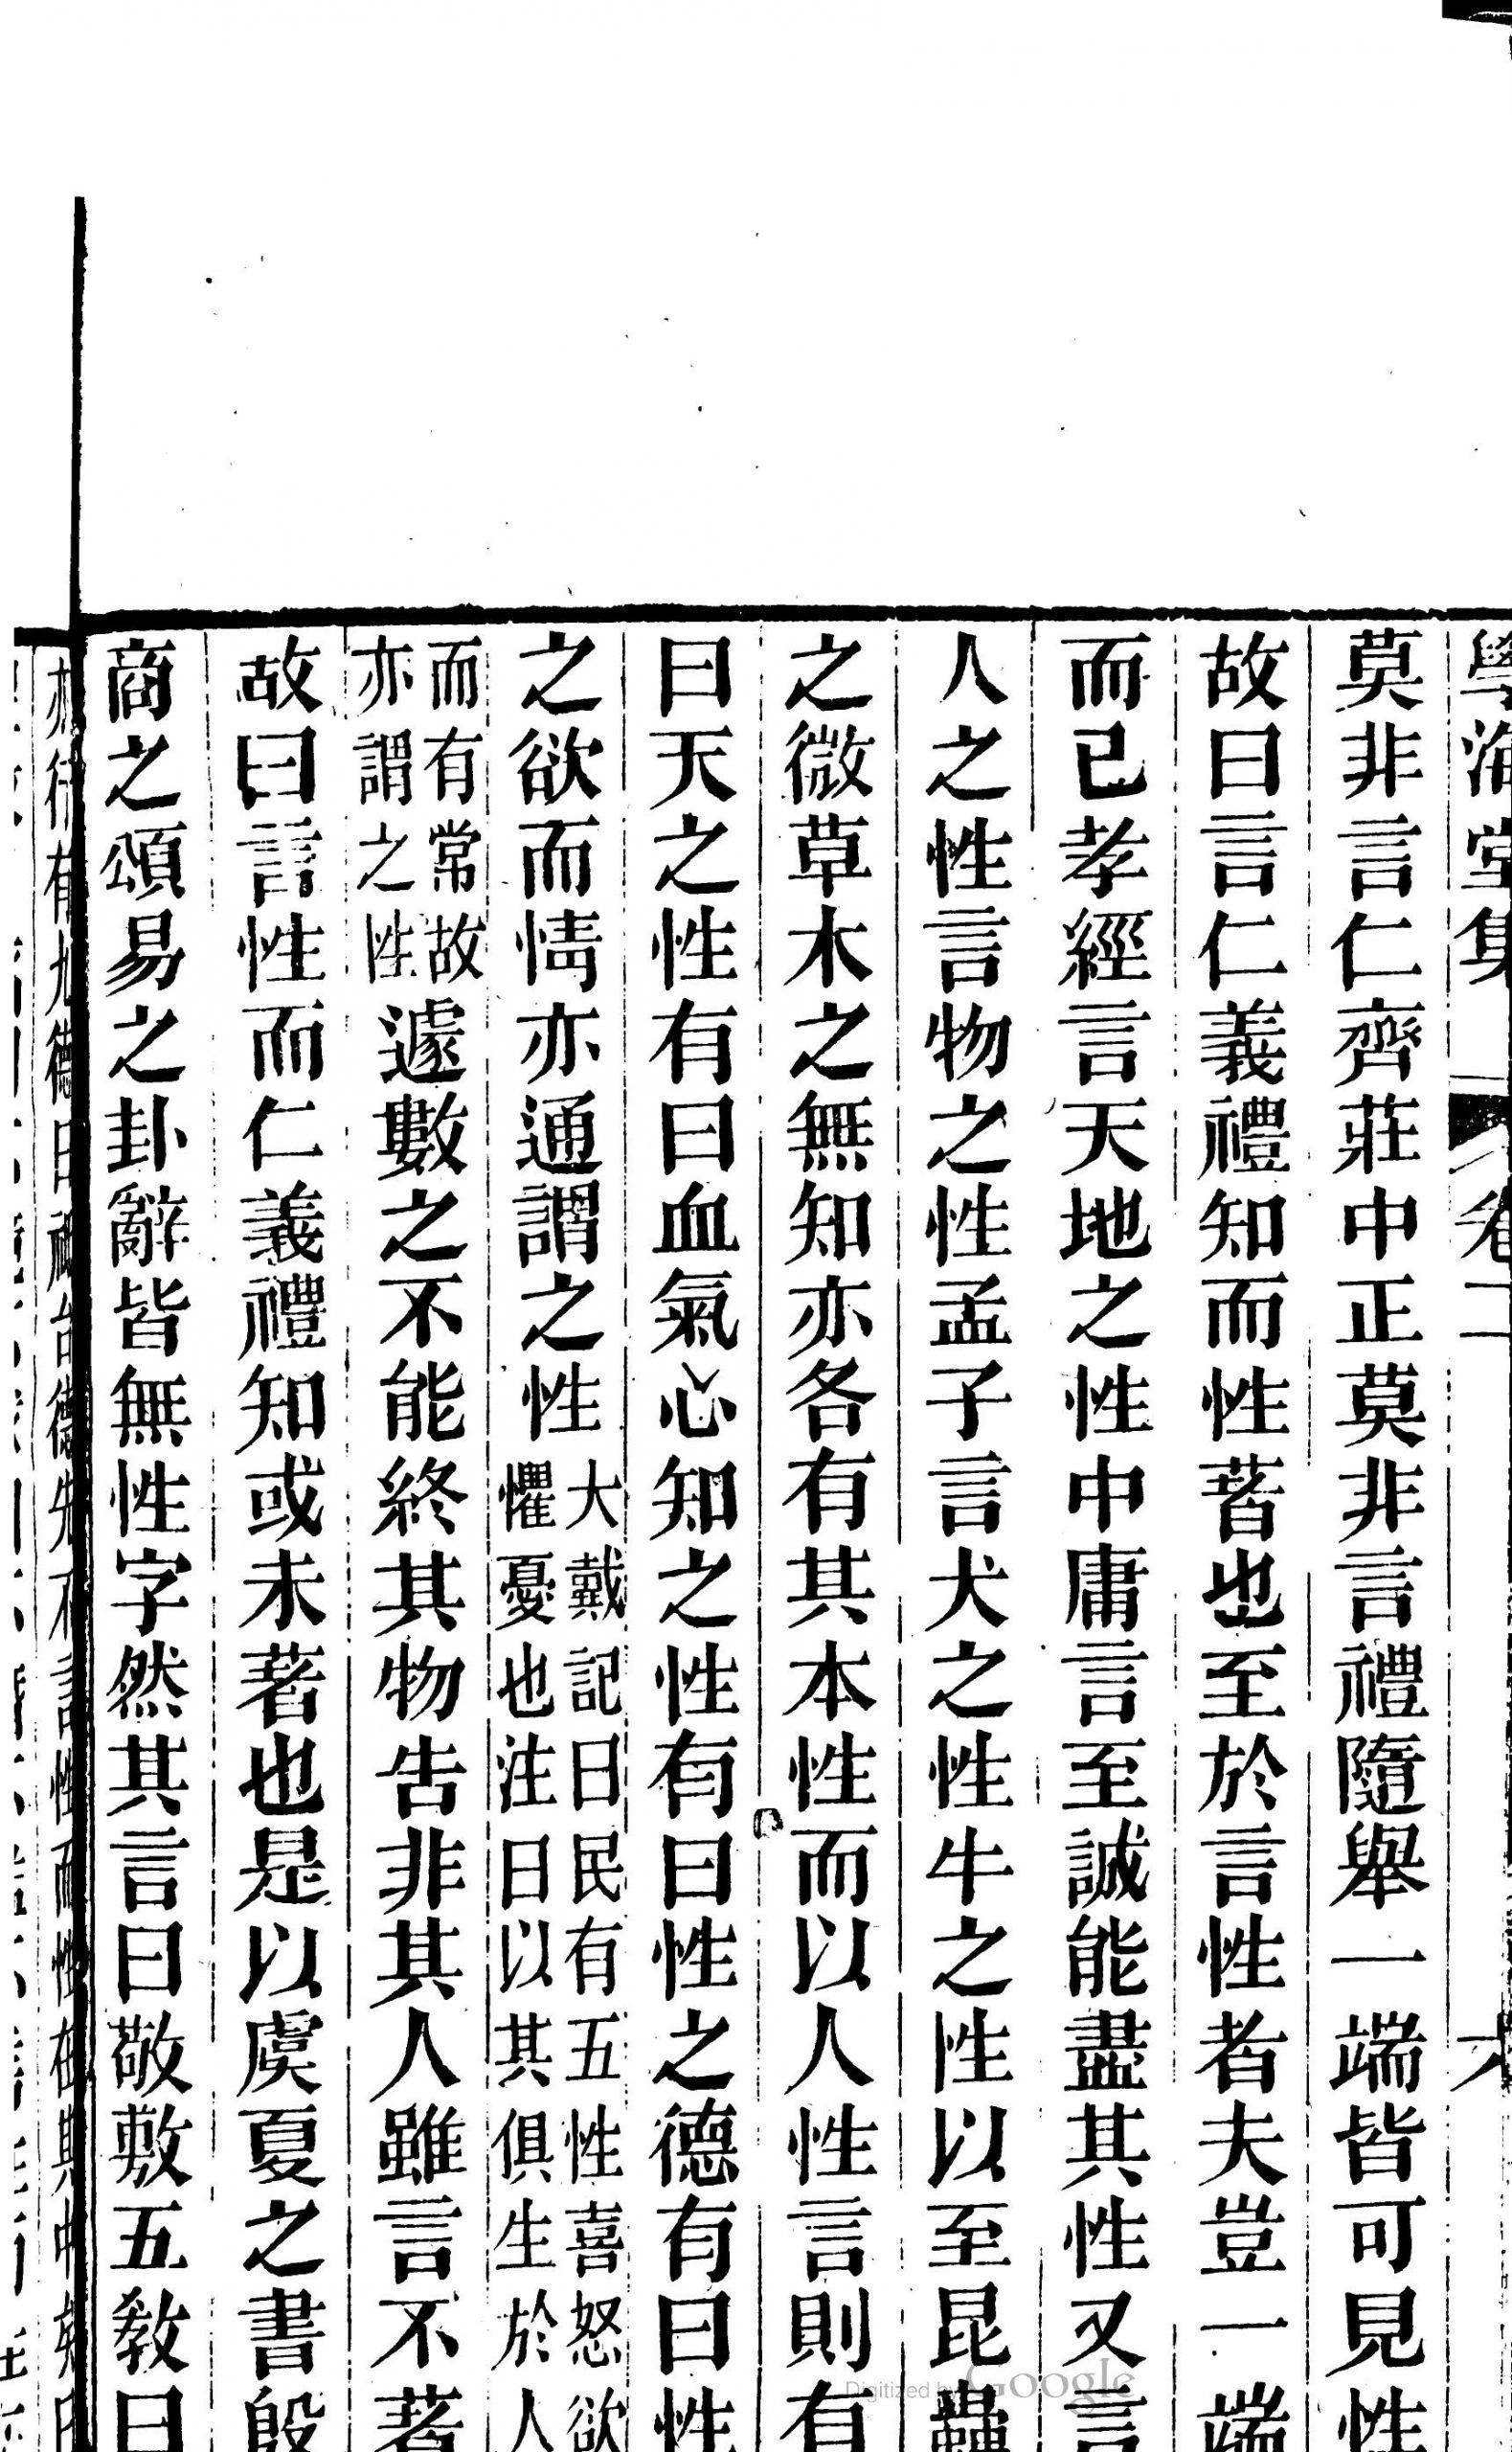 學海堂集 卷二
莫非言仁齊莊中正莫非言禮隨舉一端皆可見性
故曰言仁義禮知而性著也至於言性者夫豈一端
而已孝經言天地之性中庸言至誠能盡其性又言
人之性言物之性孟子言犬之性牛之性以至昆蟲
之微草木之無知亦各有其本性而以人性言則有
曰天之性有曰血氣心知之性有曰性之德有曰性
之欲而情亦通謂之性大戴記曰民有五性喜怒欲
懼憂也注曰以其俱生於人
而有常故
亦謂之性遽數之不能終其物吿非其人雖言不著
故曰言性而仁義禮知或未著也是以虞夏之書殷
商之頌易之卦辭皆無性字然其言曰敬敷五教曰
Digitized by Google